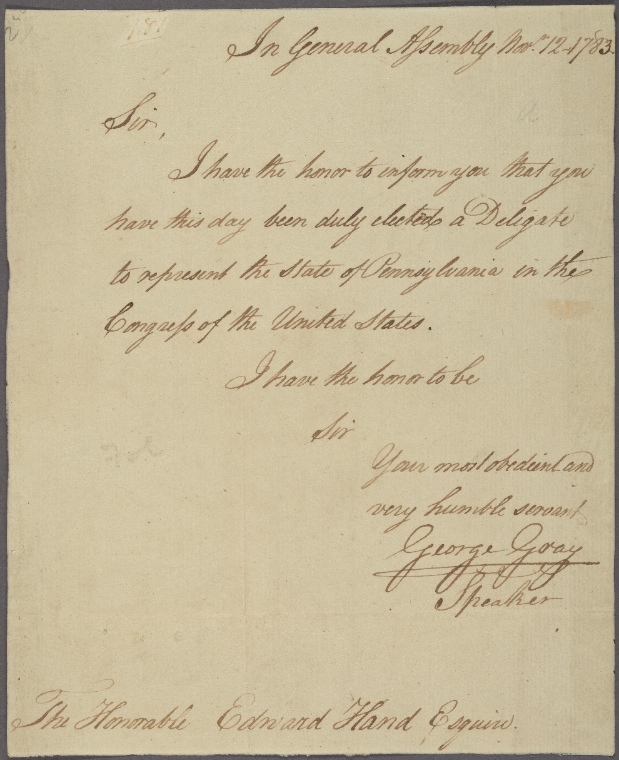 In General Assembly Nov.r 12 1783.
Sir,
I have the honor to inform you that you
have this day been duly elected a Deligate
to represent the State of Pennsylvania in the
Congress of the United States.
I have the honor to be
Sir
Your most obedient and
very humble servant
George Gray
Speaker
The Honorable Edward Hand Esquire.